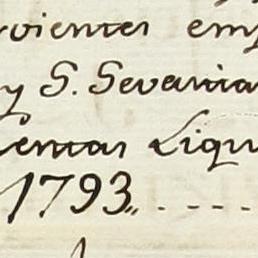 rvientes emp
y S. Sevania
entas Liqu
1793,,....